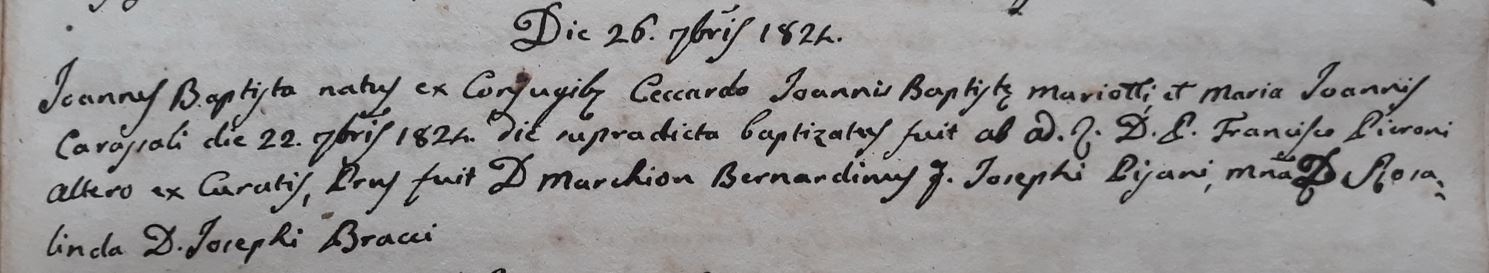 Die 26. 7bris 1824.
Joannes Baptista natus ex Conjugibz Ceccardo Joannis Baptistę Mariotti, et Maria Joannis
Carassali die 22. 7bris 1824. die supradicta baptizatus fuit ab ad. R. D. P. Francisco Pieroni
altero ex Curatis, Prus fuit D Marchion Bernardinus q. Josephi Pisani, mña D Rosa-
linda D. Josephi Bracci